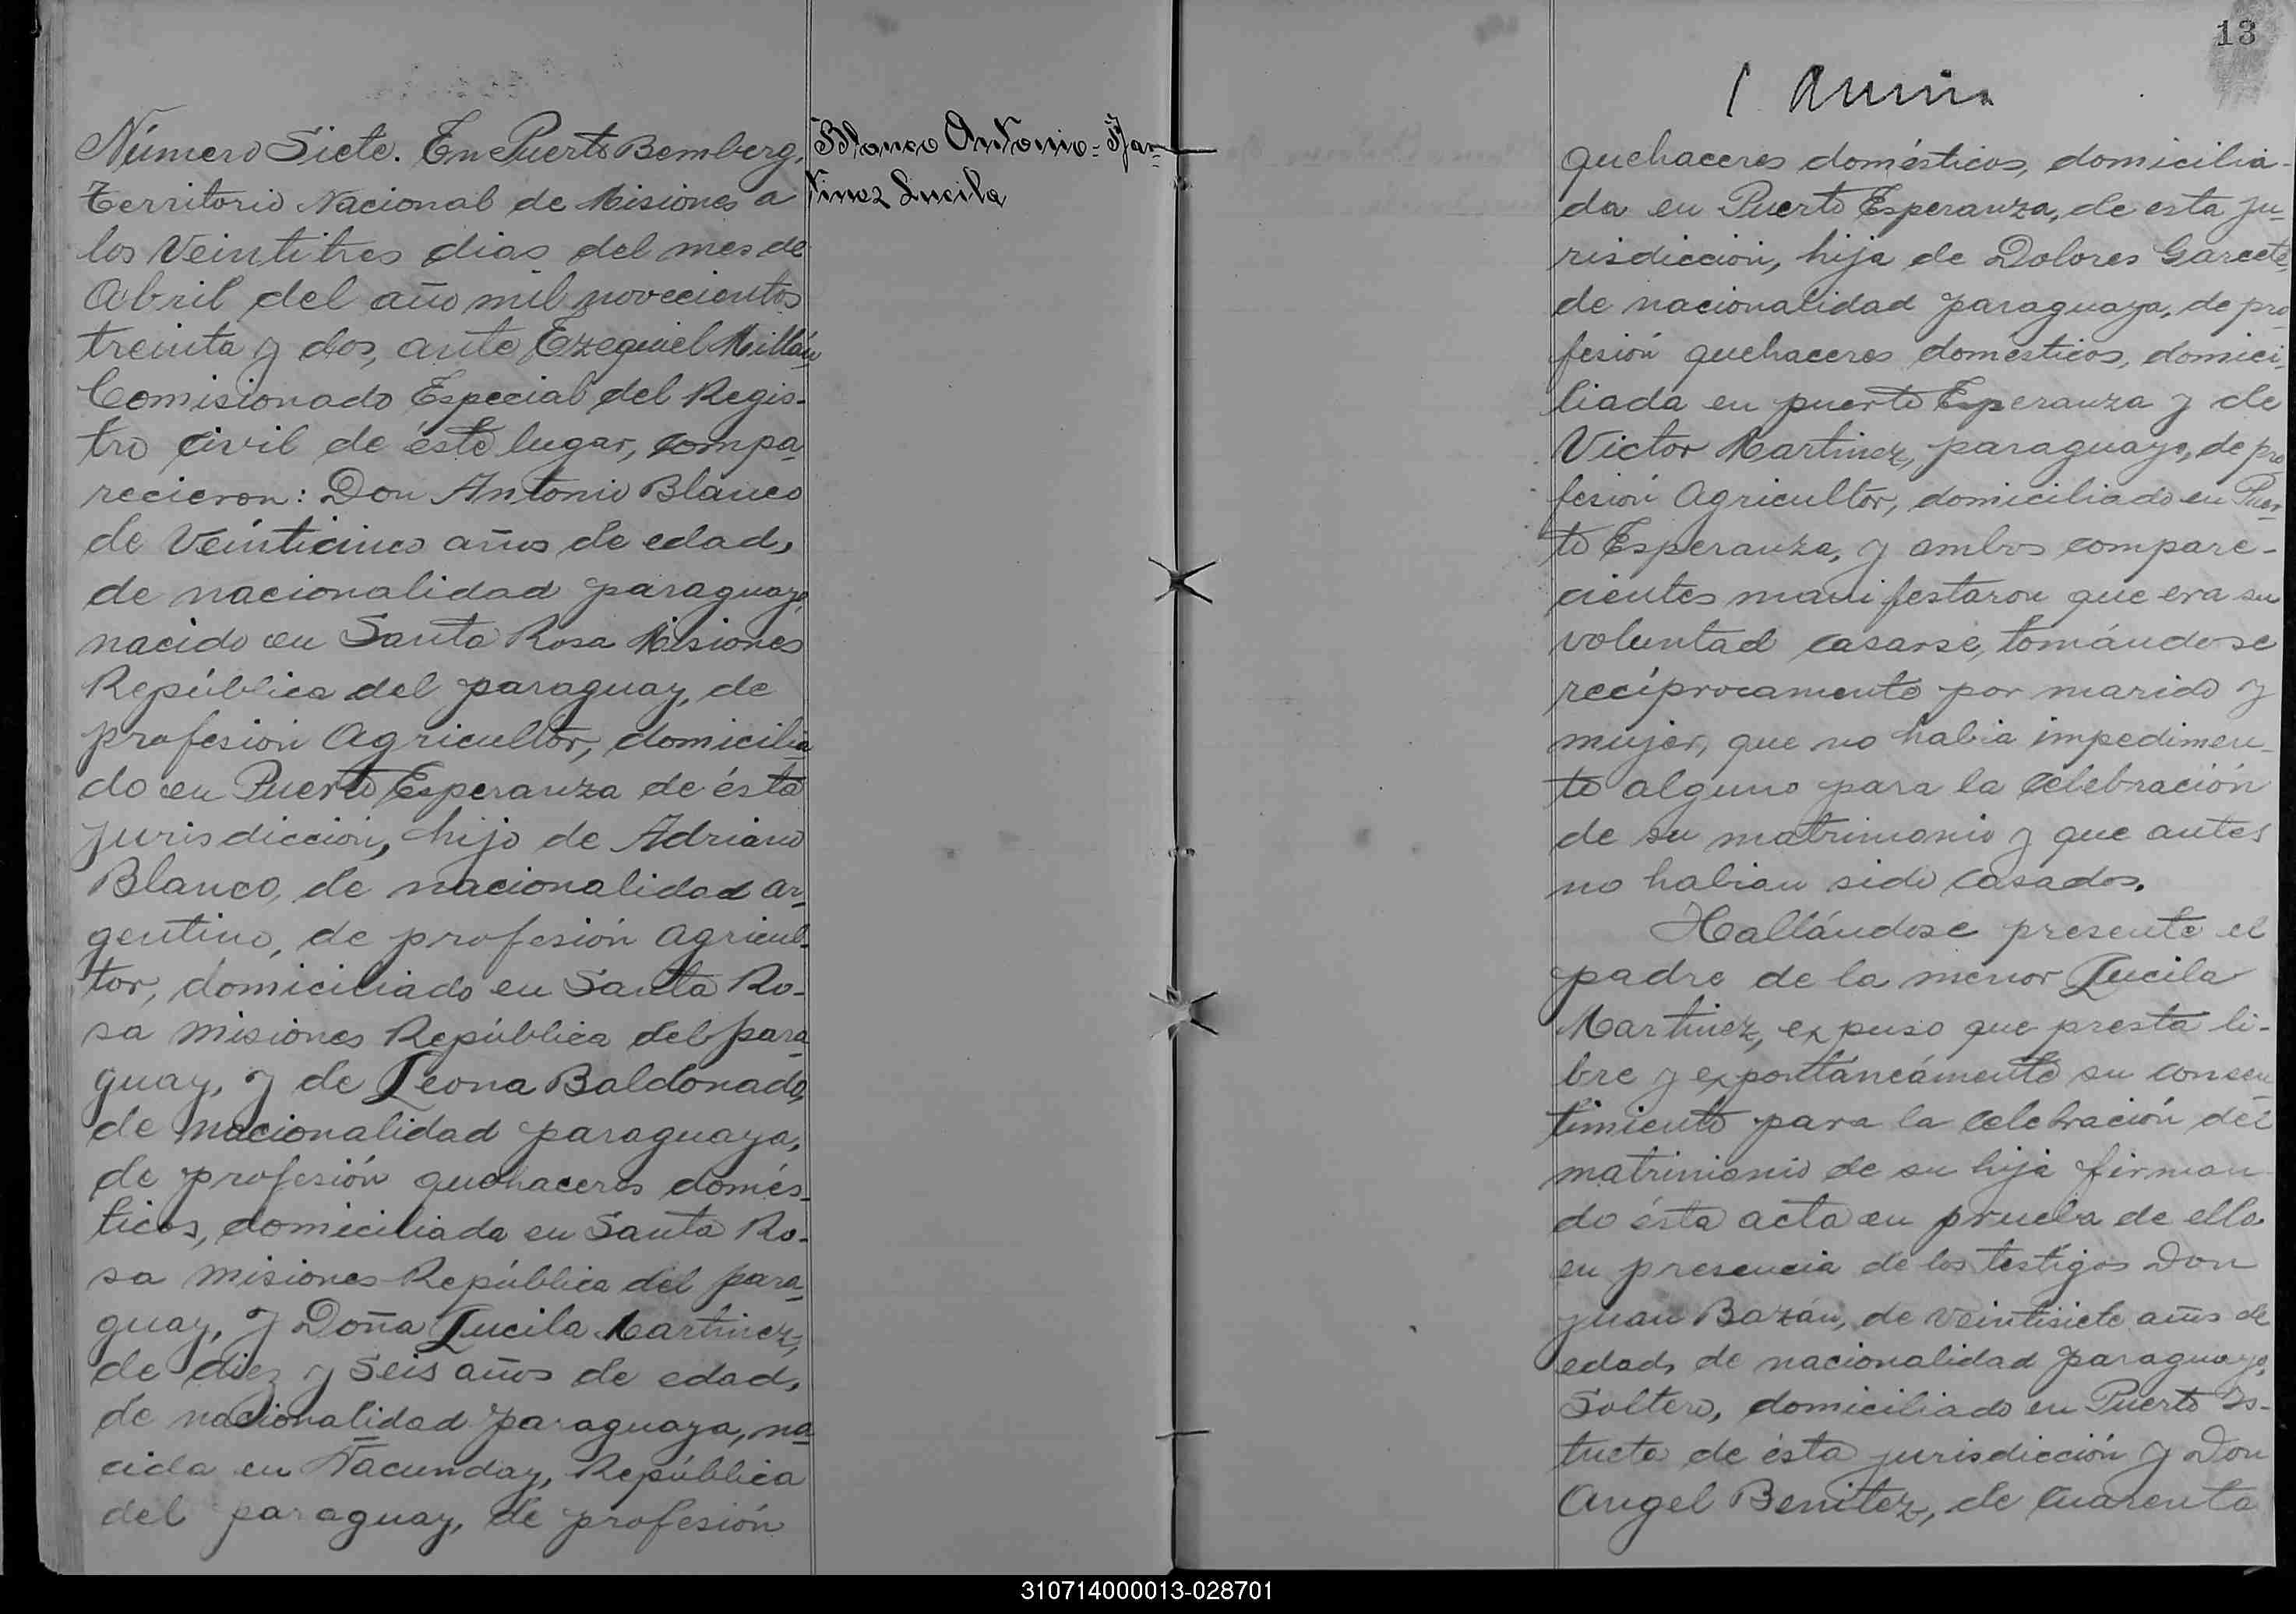 Número Siete. En Puerto Bemberg,
Territorio Nacional de Misiones a
los Veintitres dias del mes de
Abril del año mil novecientos
treinta y dos, ante Ezequiel Millán,
Comisionado Especial del Regis-
tro civil de éste lugar, compa-
recieron: Don Antonio Blanco
de Veinticinco años de edad,
de nacionalidad paraguayo,
nacido en Santa Rosa Misiones
República del paraguay, de
profesión Agricultor, domicilia
do en Puerto Esperanza de ésta
jurisdicción, hijo de Adriano
Blanco, de nacionalidad ar-
gentino, de profesión agricul-
tor, domiciliado en Santa Ro-
sa misiones República del para-
guay, y de Leona Baldonado,
de nacionalidad paraguaya,
de profesión quehaceres domés-
ticos, domiciliada en Santa Ro-
sa misiones República del para-
guay, y Doña Lucila Martinez,
de diez y seis años de edad,
de nacionalidad paraguaya, na-
cida en Ñacunday, República
del paraguay, de profesión
Blanco Antonio = Mar-
tinez Lucila
13
quehaceres domésticos, domicilia-
da en Puerto Esperanza, de esta ju-
risdicción, hija de Dolores Garcete,
de nacionalidad paraguaya, de pro
fesión quehaceres domésticos, domici-
liada en puerto Esperanza y de
Victor Martinez, paraguayo, de pro
fesión Agricultor, domiciliado en Puer-
to Esperanza, y ambos compare-
cientes manifestaron que era su
voluntad casarse, tomándose
recíprocamente por marido y
mujer, que no habia impedimen-
to alguno para la celebración
de su matrimonio y que antes
no habian sido casados.
Hallándose presente el
padre de la menor Lucila
Martinez, expuso que presta li-
bre y expontáneámente su consen
timiento para la celebración del
matrimonio de su hija firman
do ésta acta en prueba de ello
en presencia de los testigos Don
Juan Bazán, de veintisiete años de
edad, de nacionalidad paraguayo,
Soltero, domiciliado en Puerto Is-
tueta de ésta jurisdicción y Don
Angel Benitez, de cuarenta
310714000013-028701